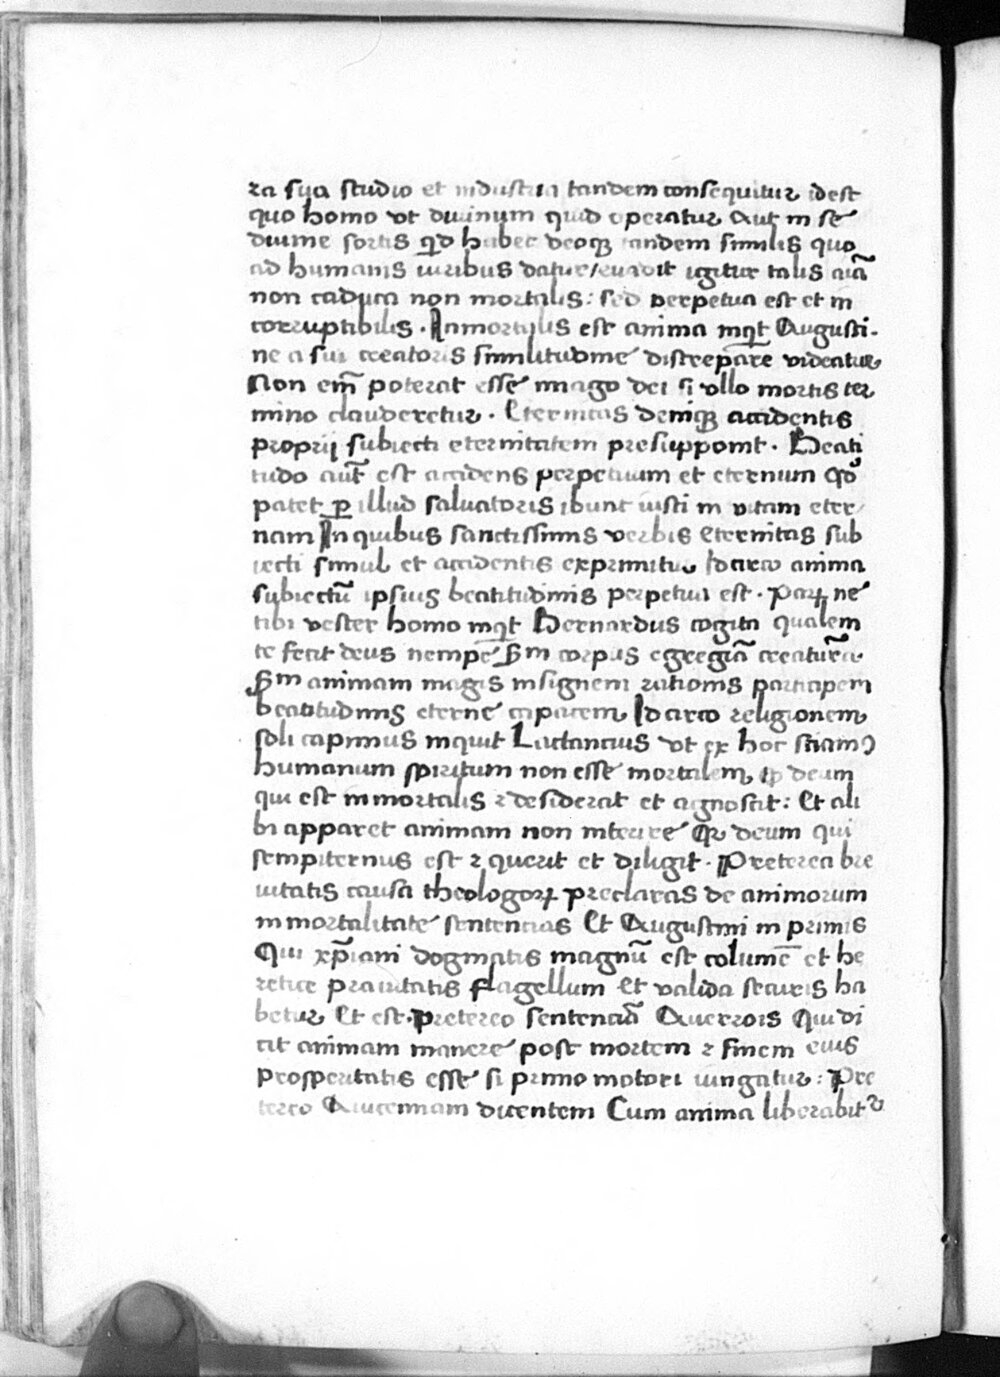 ra sua studio et industria tandem consequitur idest
quo homo ut diuinum quid operatur Aut in se
diuine sortis qd habet deoq3 tandem similis quo
ad humanis uiribus datur / euadit igitur talis aĩa
non caduca non mortalis : sed perpetua est et in
corruptibilis . Inmortalis est anima inqt Augusti-
ne a sui creatoris similitudine discrepare videatur
Non em̃ poterat esse imago dei si vllo mortis ter
mino clauderetur . Eternitas deniq3 accidentis
proprij subiecti eternitatem presupponit . Beati
tudo aut̃ est accidens perpetuum et eternum Qđ
patet p illud saluatoris ibunt iusti in vitam eter
nam In quibus sanctissimis verbis eternitas sub
iecti simul et accidentis exprimitur Idcirco anima
subiectũ ipsius beatitudinis perpetua est . Paꝝ ne
tibi vester homo inqt Bernardus cogita qualem
te fecit deus nempe Sm corpus egregiã creaturã
Sm animam magis insignem rationis participem
beatitudinis eterne capacem Idcirco religionem
soli capimus inquit Lactancius vt ex hoc sciam9
humanum spiritum non esse mortalem qp deum
qui est inmortalis 2 desiderat et agnoscit : Et ali
bi apparet animam non interire Qr deum qui
sempiternus est 2 querit et diligit . Pretereo bre
uitatis causa theologoꝝ preclaras de animorum
inmortalitate sentencias Et Augustini in primis
Qui xp̃iani dogmatis magnũ est columẽ et he
retice prauitatis flagellum et valida securis ha
betur Et est . pretereo sentenciã Auerrois Qui di
cit animam manere post mortem 2 finem eius
prosperitatis esse si primo motori iungatur : Pre
tereo Auicennam dicentem Cum anima liberabit2